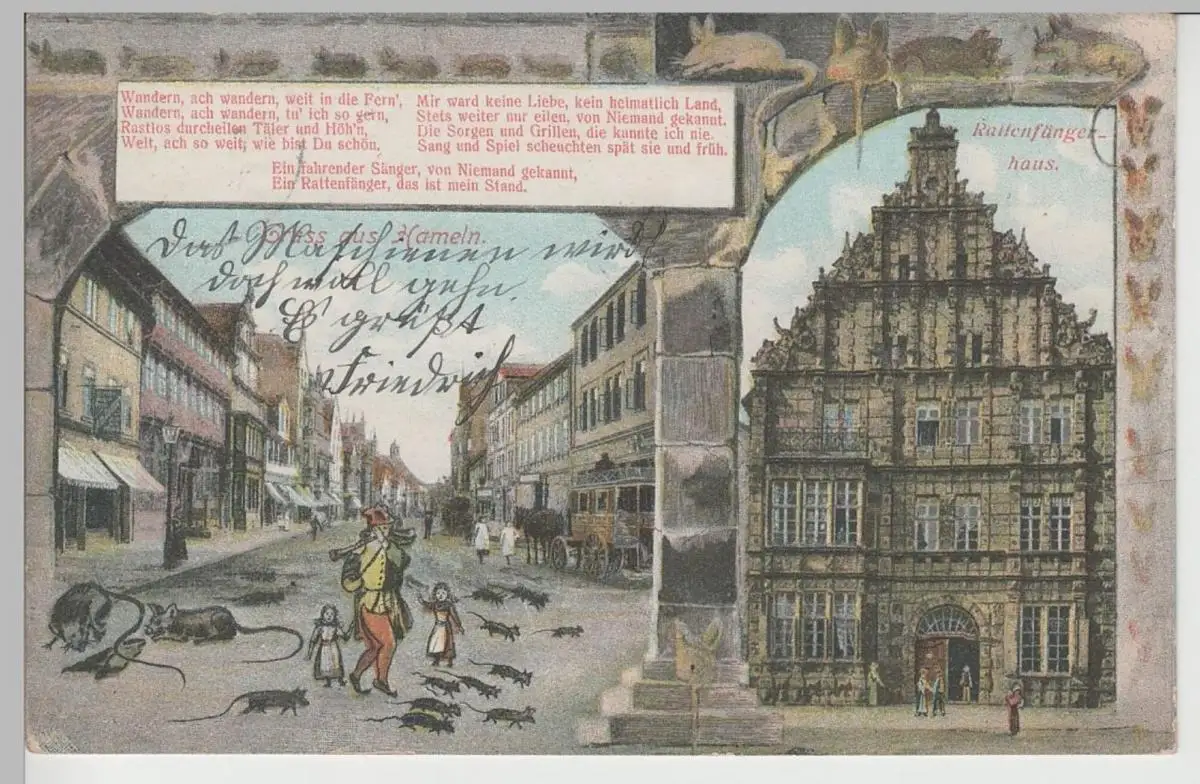 Wandern, ach wandern, weit in die Fern',
Wandern, ach wandern, tu' ich so gern,
Rastlos durcheilen Täler und Höh'n,
Welt, ach so weit, wie bist Du schön,
Mir ward keine Liebe, kein heimatlich Land,
Stets weiter nur eilen, von Niemand gekannt.
Die Sorgen und Grillen, die kannte ich nie.
Sang und Spiel scheuchten spät sie und früh.
Ein fahrender Sänger, von Niemand gekannt,
Ein Rattenfänger, das ist mein Stand.
Gruss aus Hameln.
Das Maschienen wird
doch woll gehn.
Es grüßt
Friedrich
Rattenfänger-
haus.